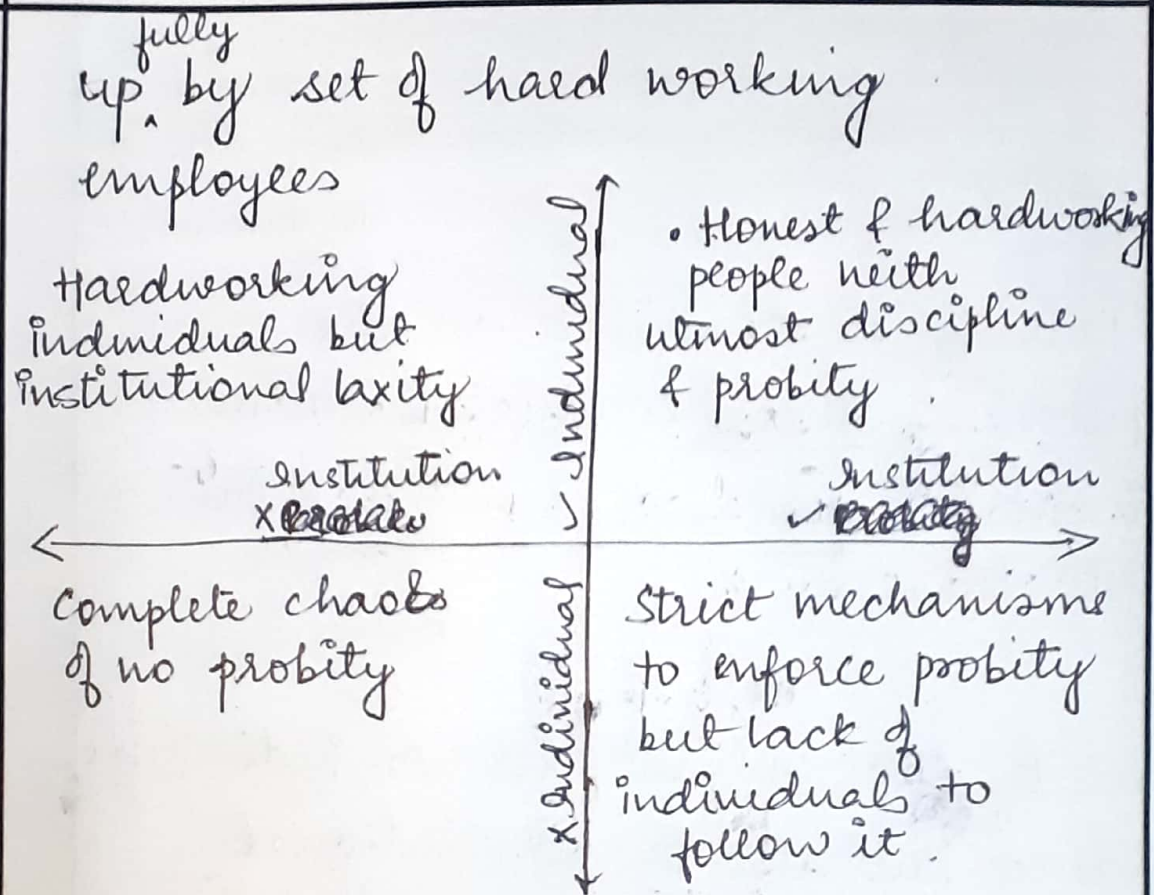 fully
up ‸ by set of hard working
employees
Hardworking
individuals but
institutional laxity
✓ Individual
• Honest & hardworking
people with
utmost discipline
& probity
Institution
X
Institution
✓
Complete chaos
of no probity
X Individual
Strict mechanisms
to enforce probity
but lack of
individuals to
follow it.